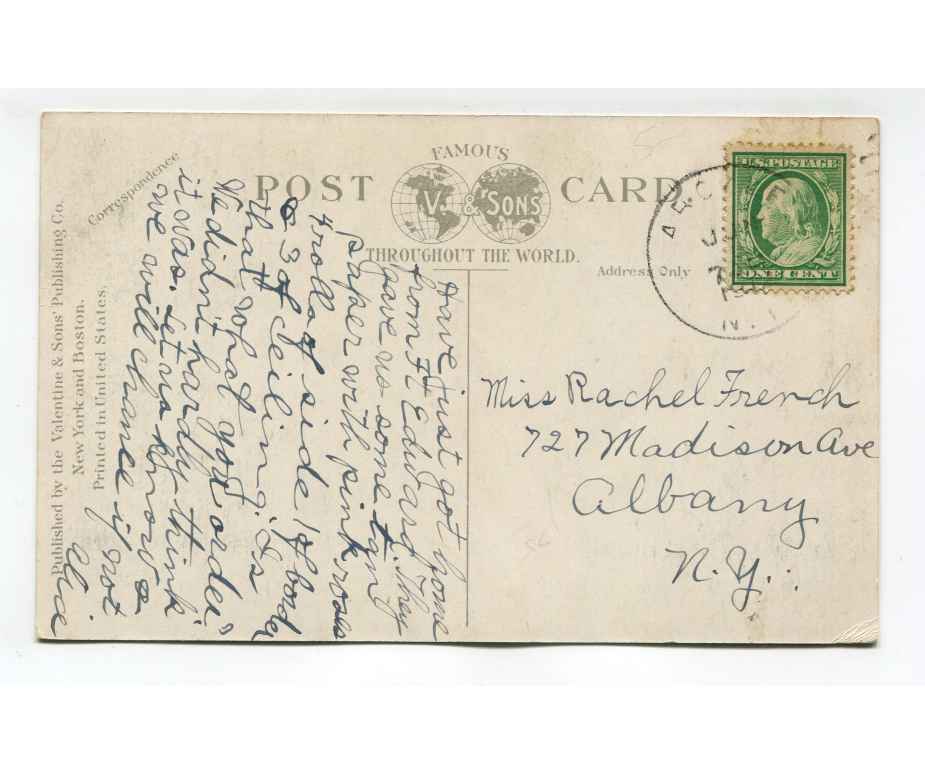 FAMOUS
POST CARD
V. & SONS
THROUGHOUT THE WORLD.
Correspondence
Address Only
Published by the Valentine & Sons' Publishing Co.
New York and Boston.
Printed in United States.
U.S. POSTAGE
ONE CENT
N.Y.
Miss Rachel French
727 Madison Ave
Albany
N.Y.
Have just got home
from Ft Edward. They
gave us some tan
paper with pink roses
4 rolls of side 1 of border
& 3 of ceiling. Is
that what you order
We didn't hardly think
it was. Let us know &
we will change if not
Alice